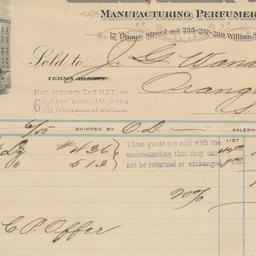 MANUFACTURING PERFUMER
12 Duane Street and 235-237-239 William S
Sold to J. G. Wana
TERMS
Orang
Due January 2nd NET, or
6% for cash 10 days
6/15 SHIPPED BY O.D. SALESM
LIST
Dz #436
" 513
These goods are sold with the
understanding that they can
not be returned or exchanged.
C. P. Offer